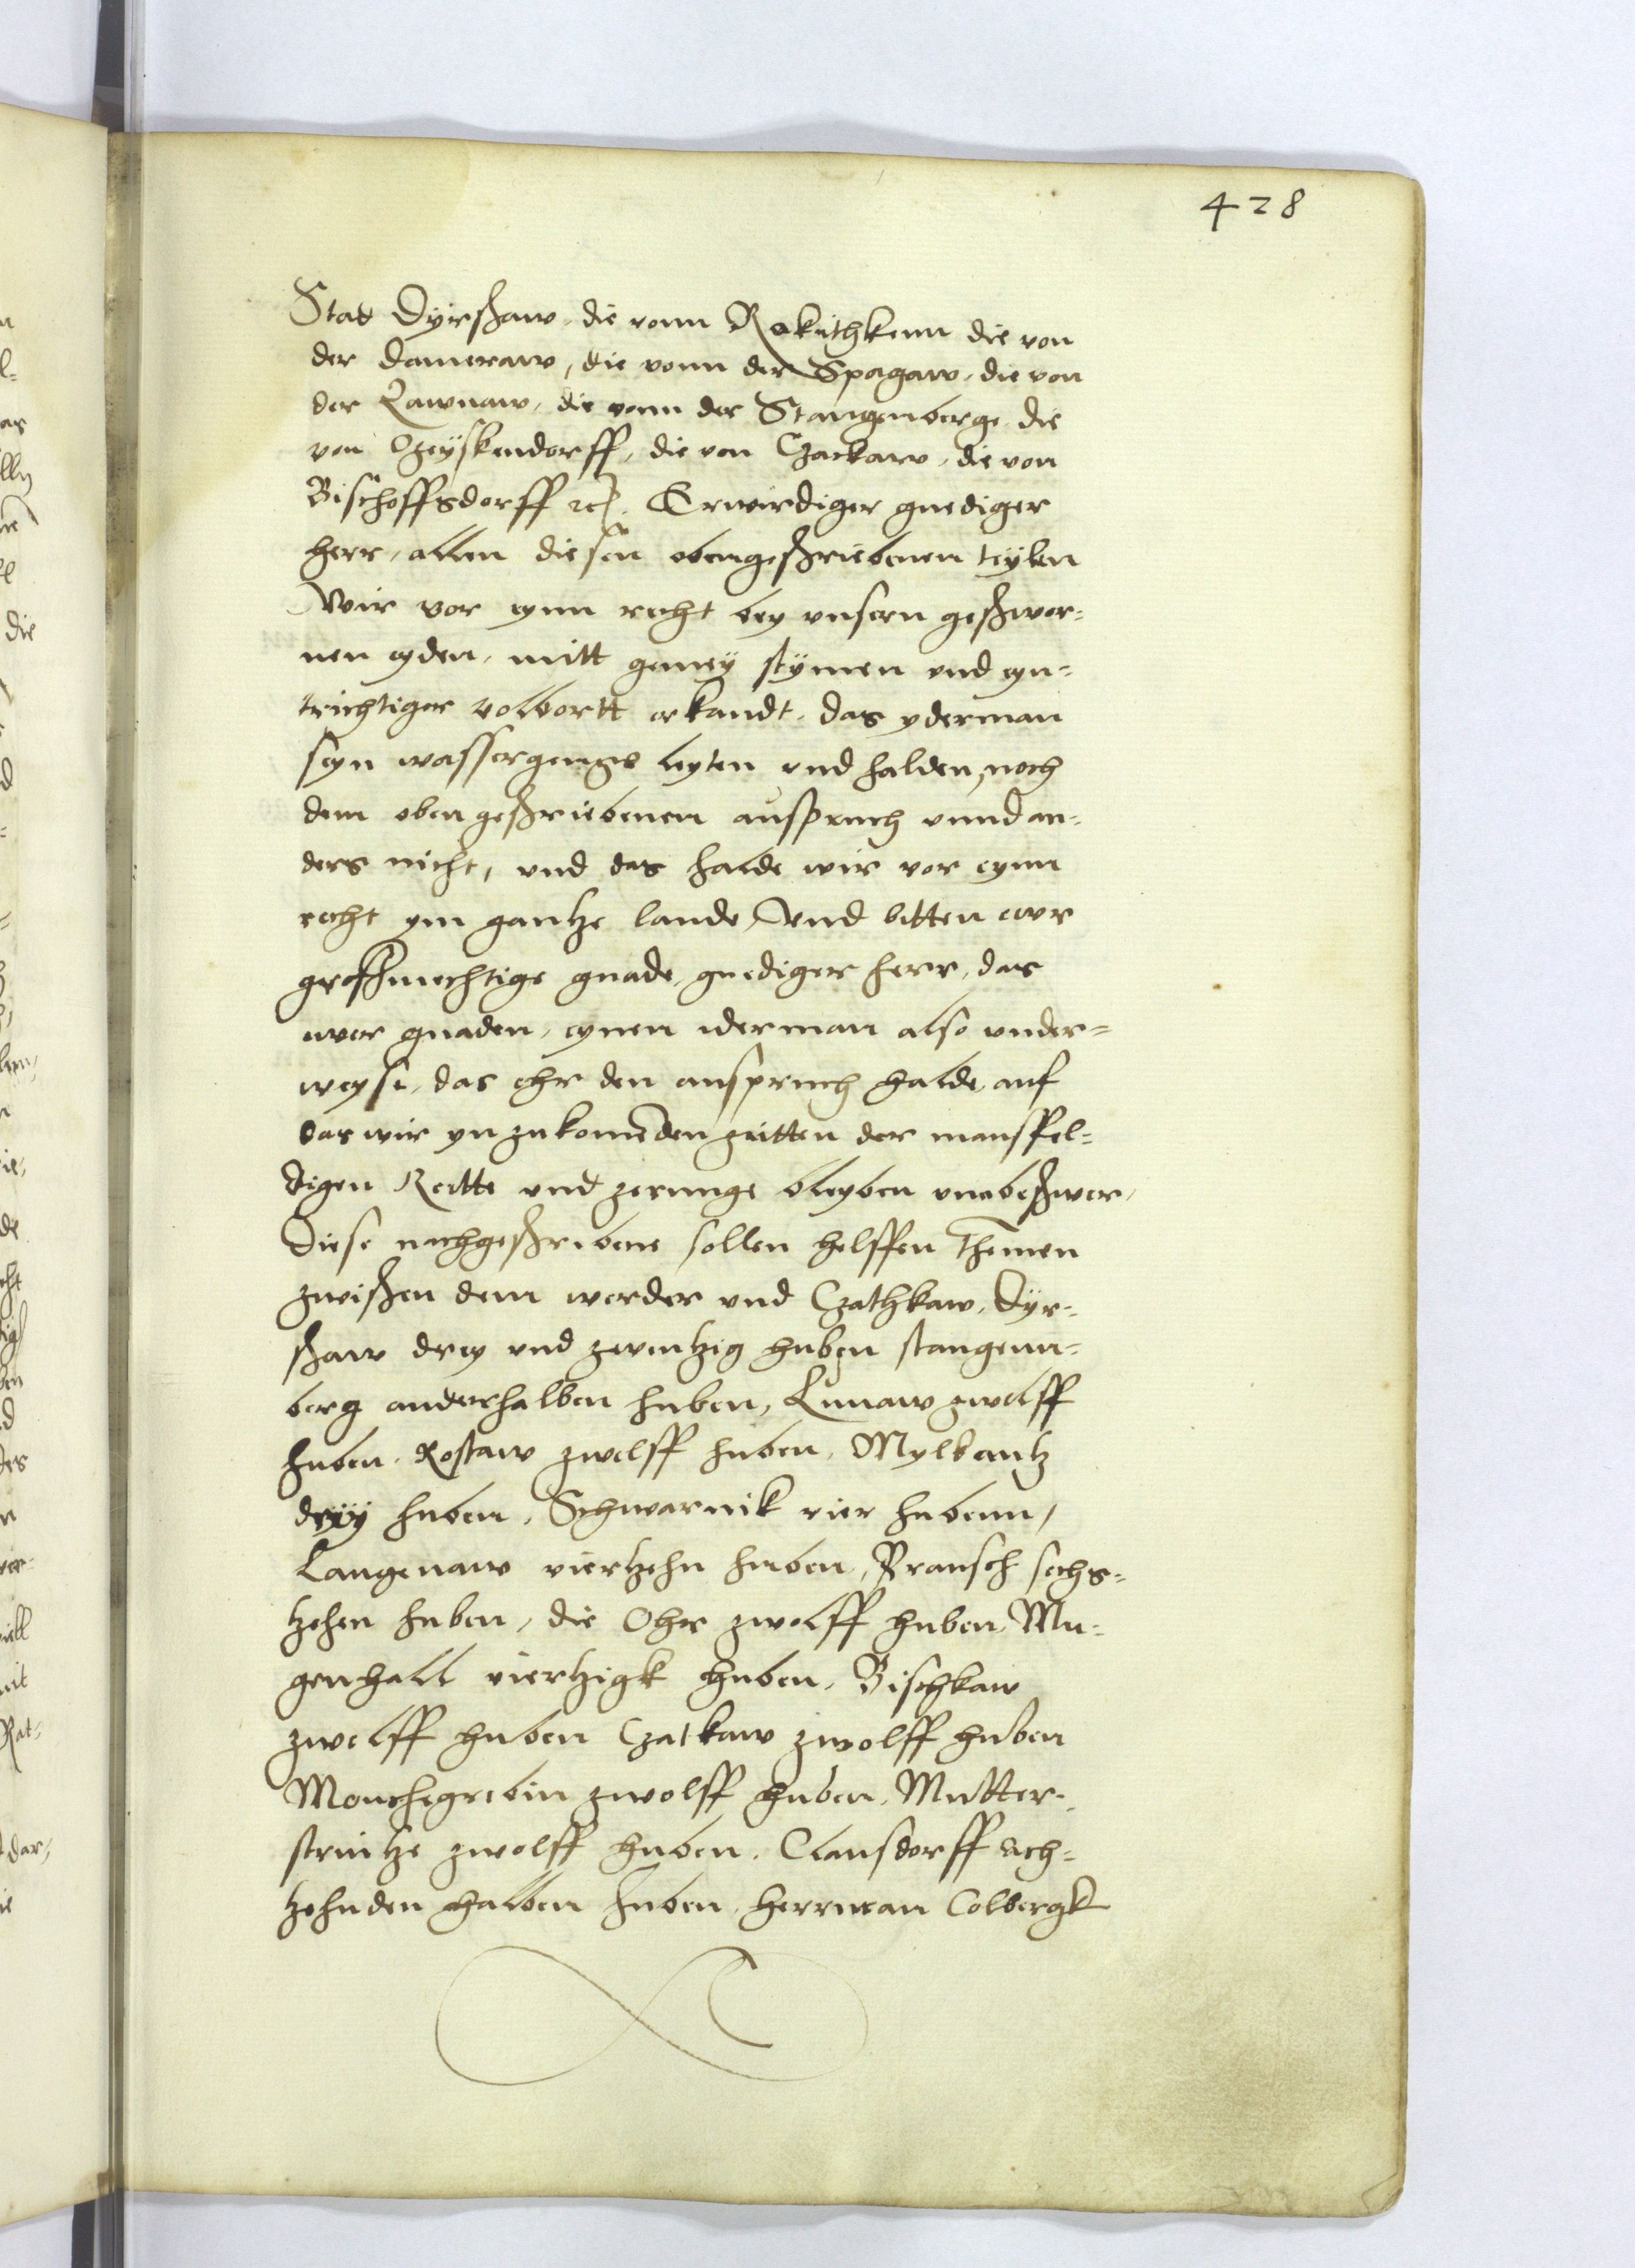 428
Stat Dyrßaw, die vonn Rokithkenn die von
der Dameraw, die vonn der Spagaw, die von
der Lawnaw, die vonn der Stangenberge die
von Czeyskendorff, die von Czackaw, die von
Bischoffsdorff ꝛc. Erwirdiger gnediger
herr, allen diesen obengeßriebenen teylen
Wir vor eynn recht bey unsern geßwor-
nen eyden, mitt gemey stymen und eyn-
trichtiger volbortt erkandt, das yderman
seyn wassergenge leyten und halden, noch
dem oben geßriebenen ausspruch unnd an-
ders nicht, und das halde wir vor eynn
recht ym gantze lande, Und bitten ewr
großmechtige gnade, gnediger herr, das
ewer gnaden, eynen iderman also under-
weyse, das ehr den ausspruch halde, auf
das wir yn zukomenden zeitten der manffel-
digen Reitte und zerunge bleyben unnbeßwer,
Diese nachgeßribene sollen helffen Themen
zwißen dem werder und Czathkaw, Dyr-
ßaw drey und zwentzig huben stangenn-
berg anderhalben huben, Lunaw zwelff
huben, Rostaw zwelff huben, Mylbantz
dryy huben, Schwarnik vier hubenn,
Langenaw viertzehn huben, Pransch sechs-
tzehen huben, die Ohr zwolff huben, Mu-
genhall viertzigk huben, Bischkaw
zwelff huben Czatkaw zwolff huben
Monchegrebin zwolff huben, Mutter-
strintze zwolff huben, Clausdorff ach-
tzehnden halben huben, herrman Colbergk